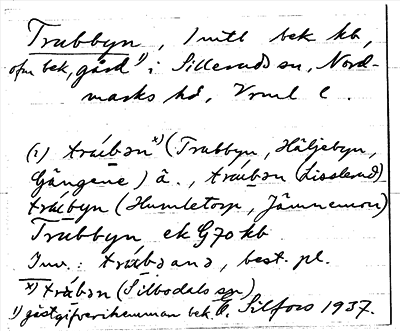 Trubbyn, 1 mtl bek kb,
ofm bek, gård ¹) i Sillerud sn, Nord-
marks hd, Vrml l.
(1) trúbən ˣ) (Trubbyn, Häljebyn,
Gängene) ä., trúbən (Lisslerud)
trúbyn (Humletorp, Jämnemon)
Trubbyn ek G70 kb
Inv.: trúbəanə, best. pl.
ˣ) trúbən (Silbodals sn)
¹) gästgifverihemman bek. E. Silfors 1937.